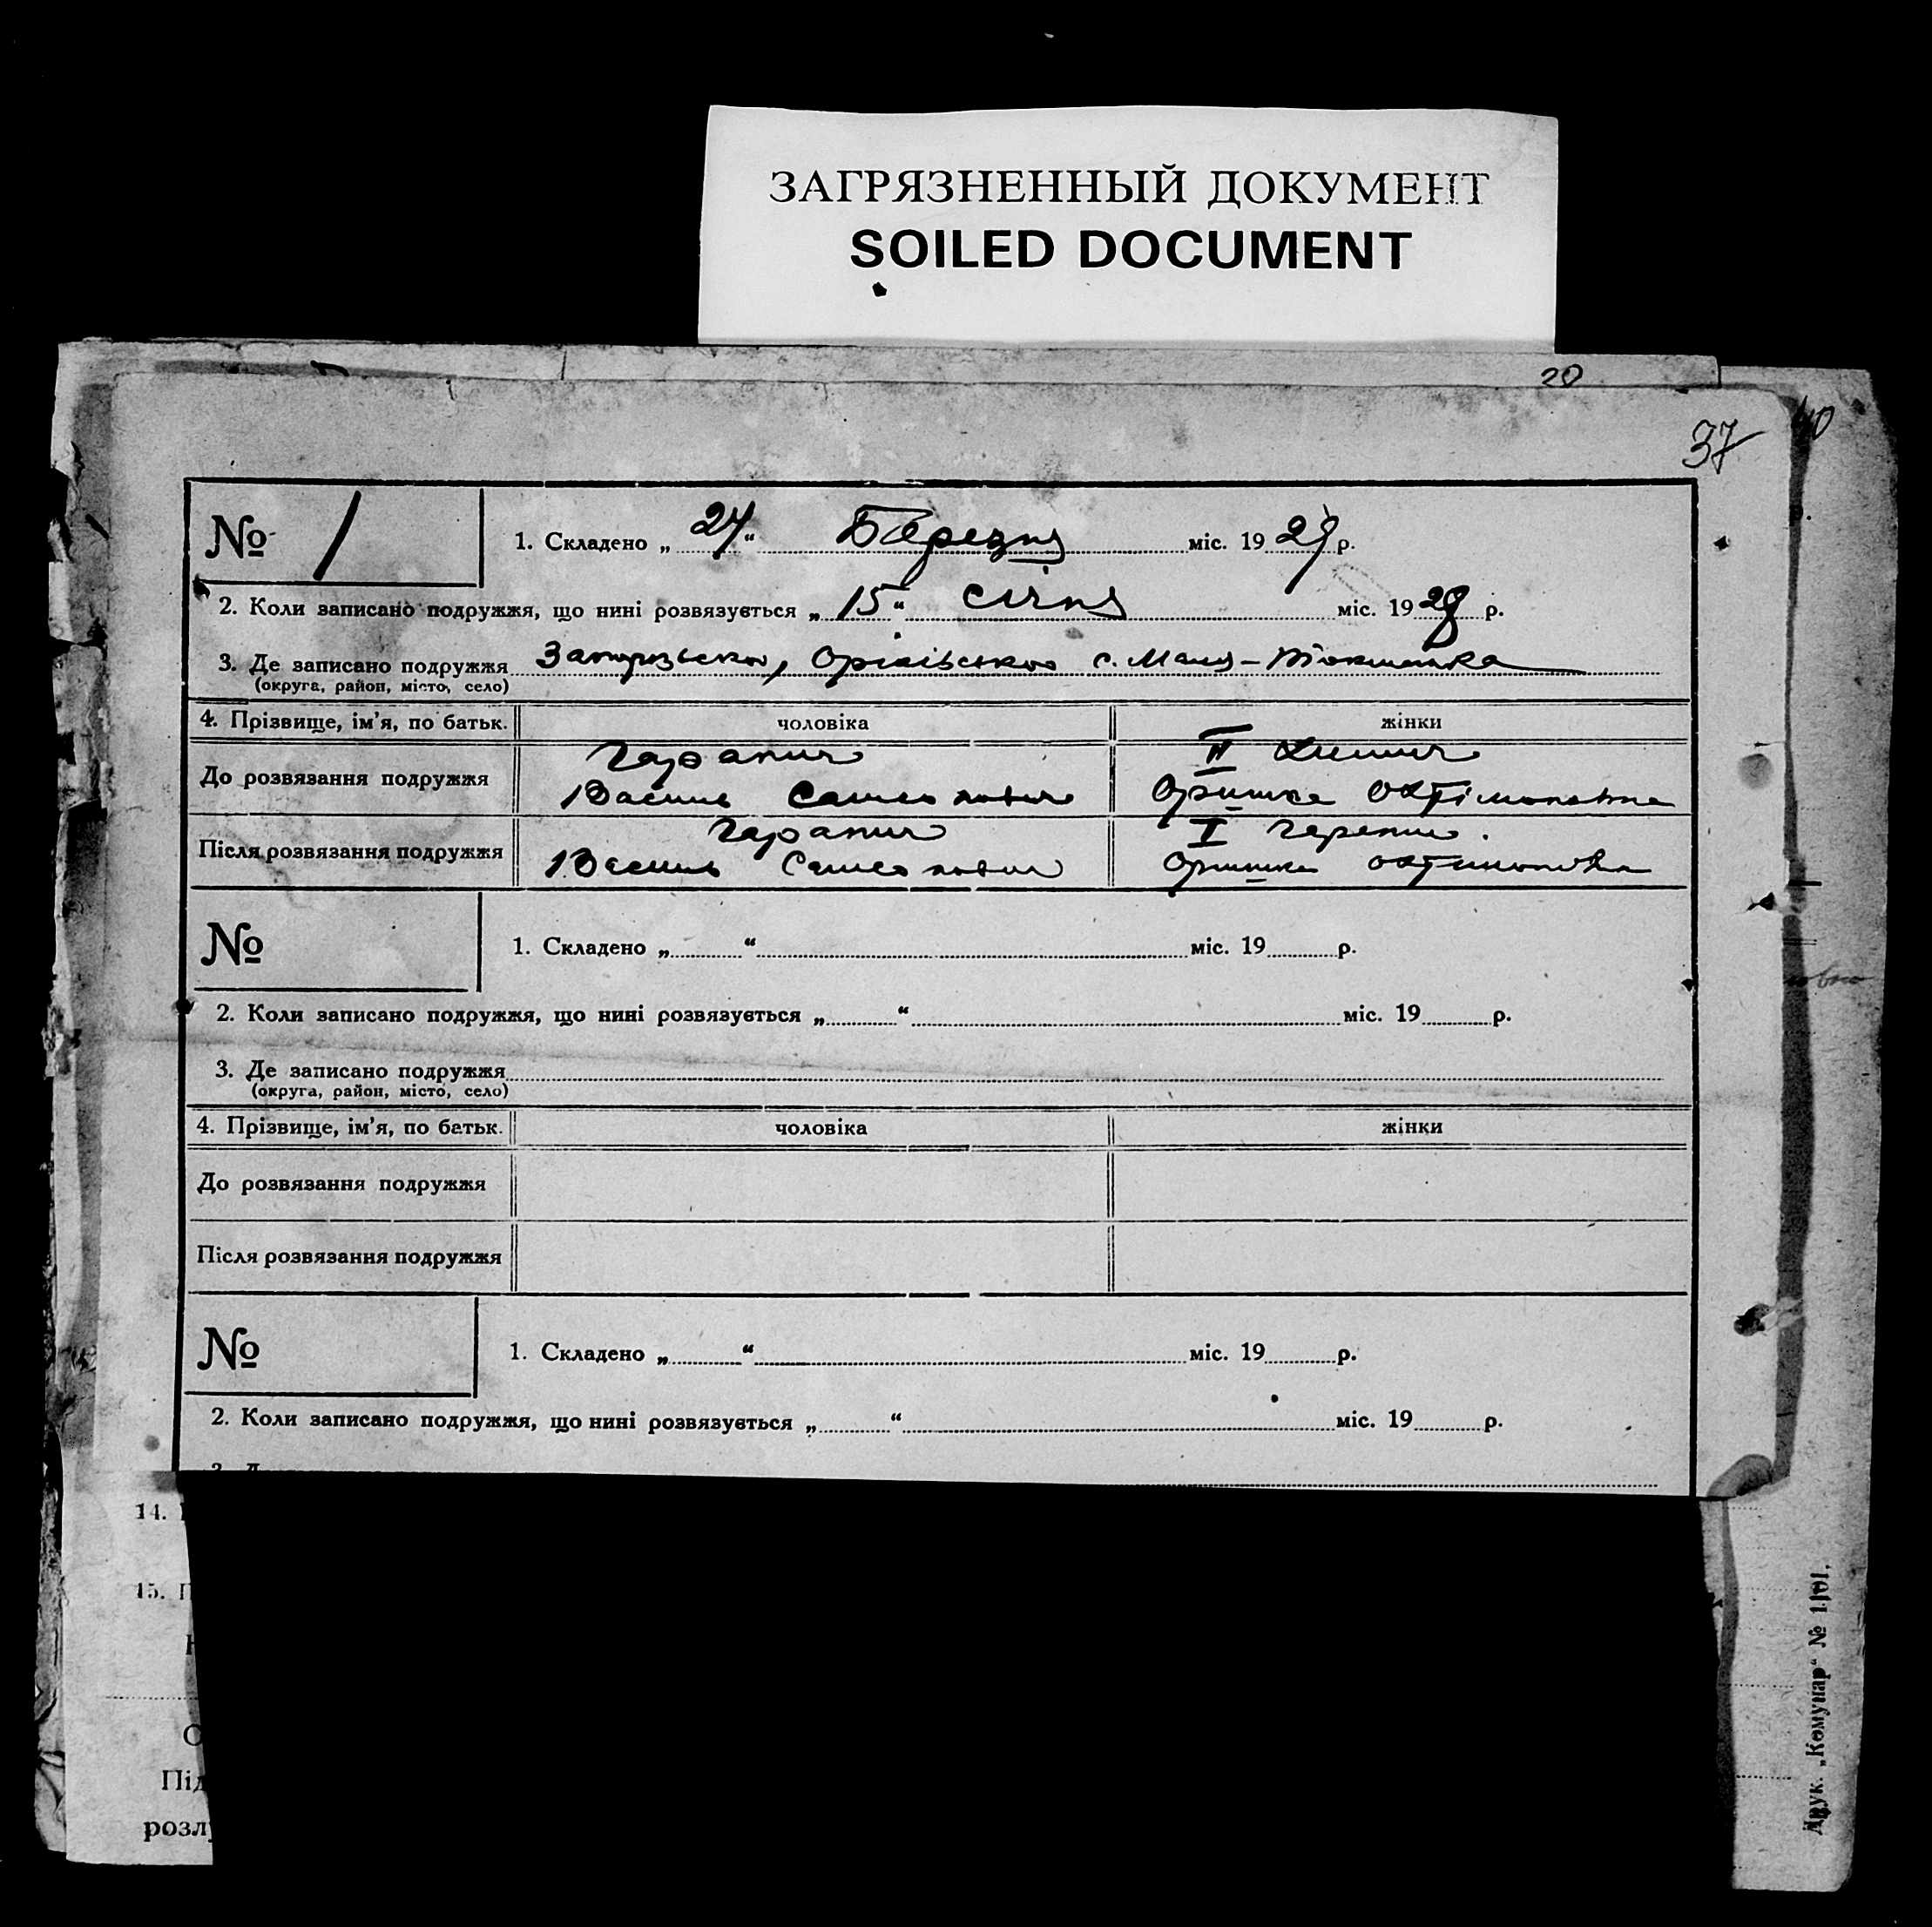 ЗАГРЯЗНЕННЫЙ ДОКУМЕНТ
SOILED DOCUMENT
20
37
40
№ 1
1. Складено „ 24 “ Березня міс. 1929 р.
2. Коли записано подружжя, що нині розвязується „ 15 “ січня міс. 1928 р.
3. Де записано подружжя Запорізької, Оріхівського с. Мала-Токмачка
(округа, район, місто, село)
4. Прізвище, ім'я, по батьк. чоловіка жінки
До розвязання подружжя
Василь Оришка
Після розвязання подружжя
Василь Оришка
№
1. Складено „ “ міс. 19 р.
2. Коли записано подружжя, що нині розвязується „ “ міс. 19 р.
3. Де записано подружжя
(округа, район, місто, село)
4. Прізвище, ім'я, по батьк. чоловіка жінки
До розвязання подружжя
Після розвязання подружжя
№
1. Складено „ “ міс. 19 р.
2. Коли записано подружжя, що нині розвязується „ “ міс. 19 р.
14.
15. П
Під
розл
Друк. „Комунар“ № 1101.